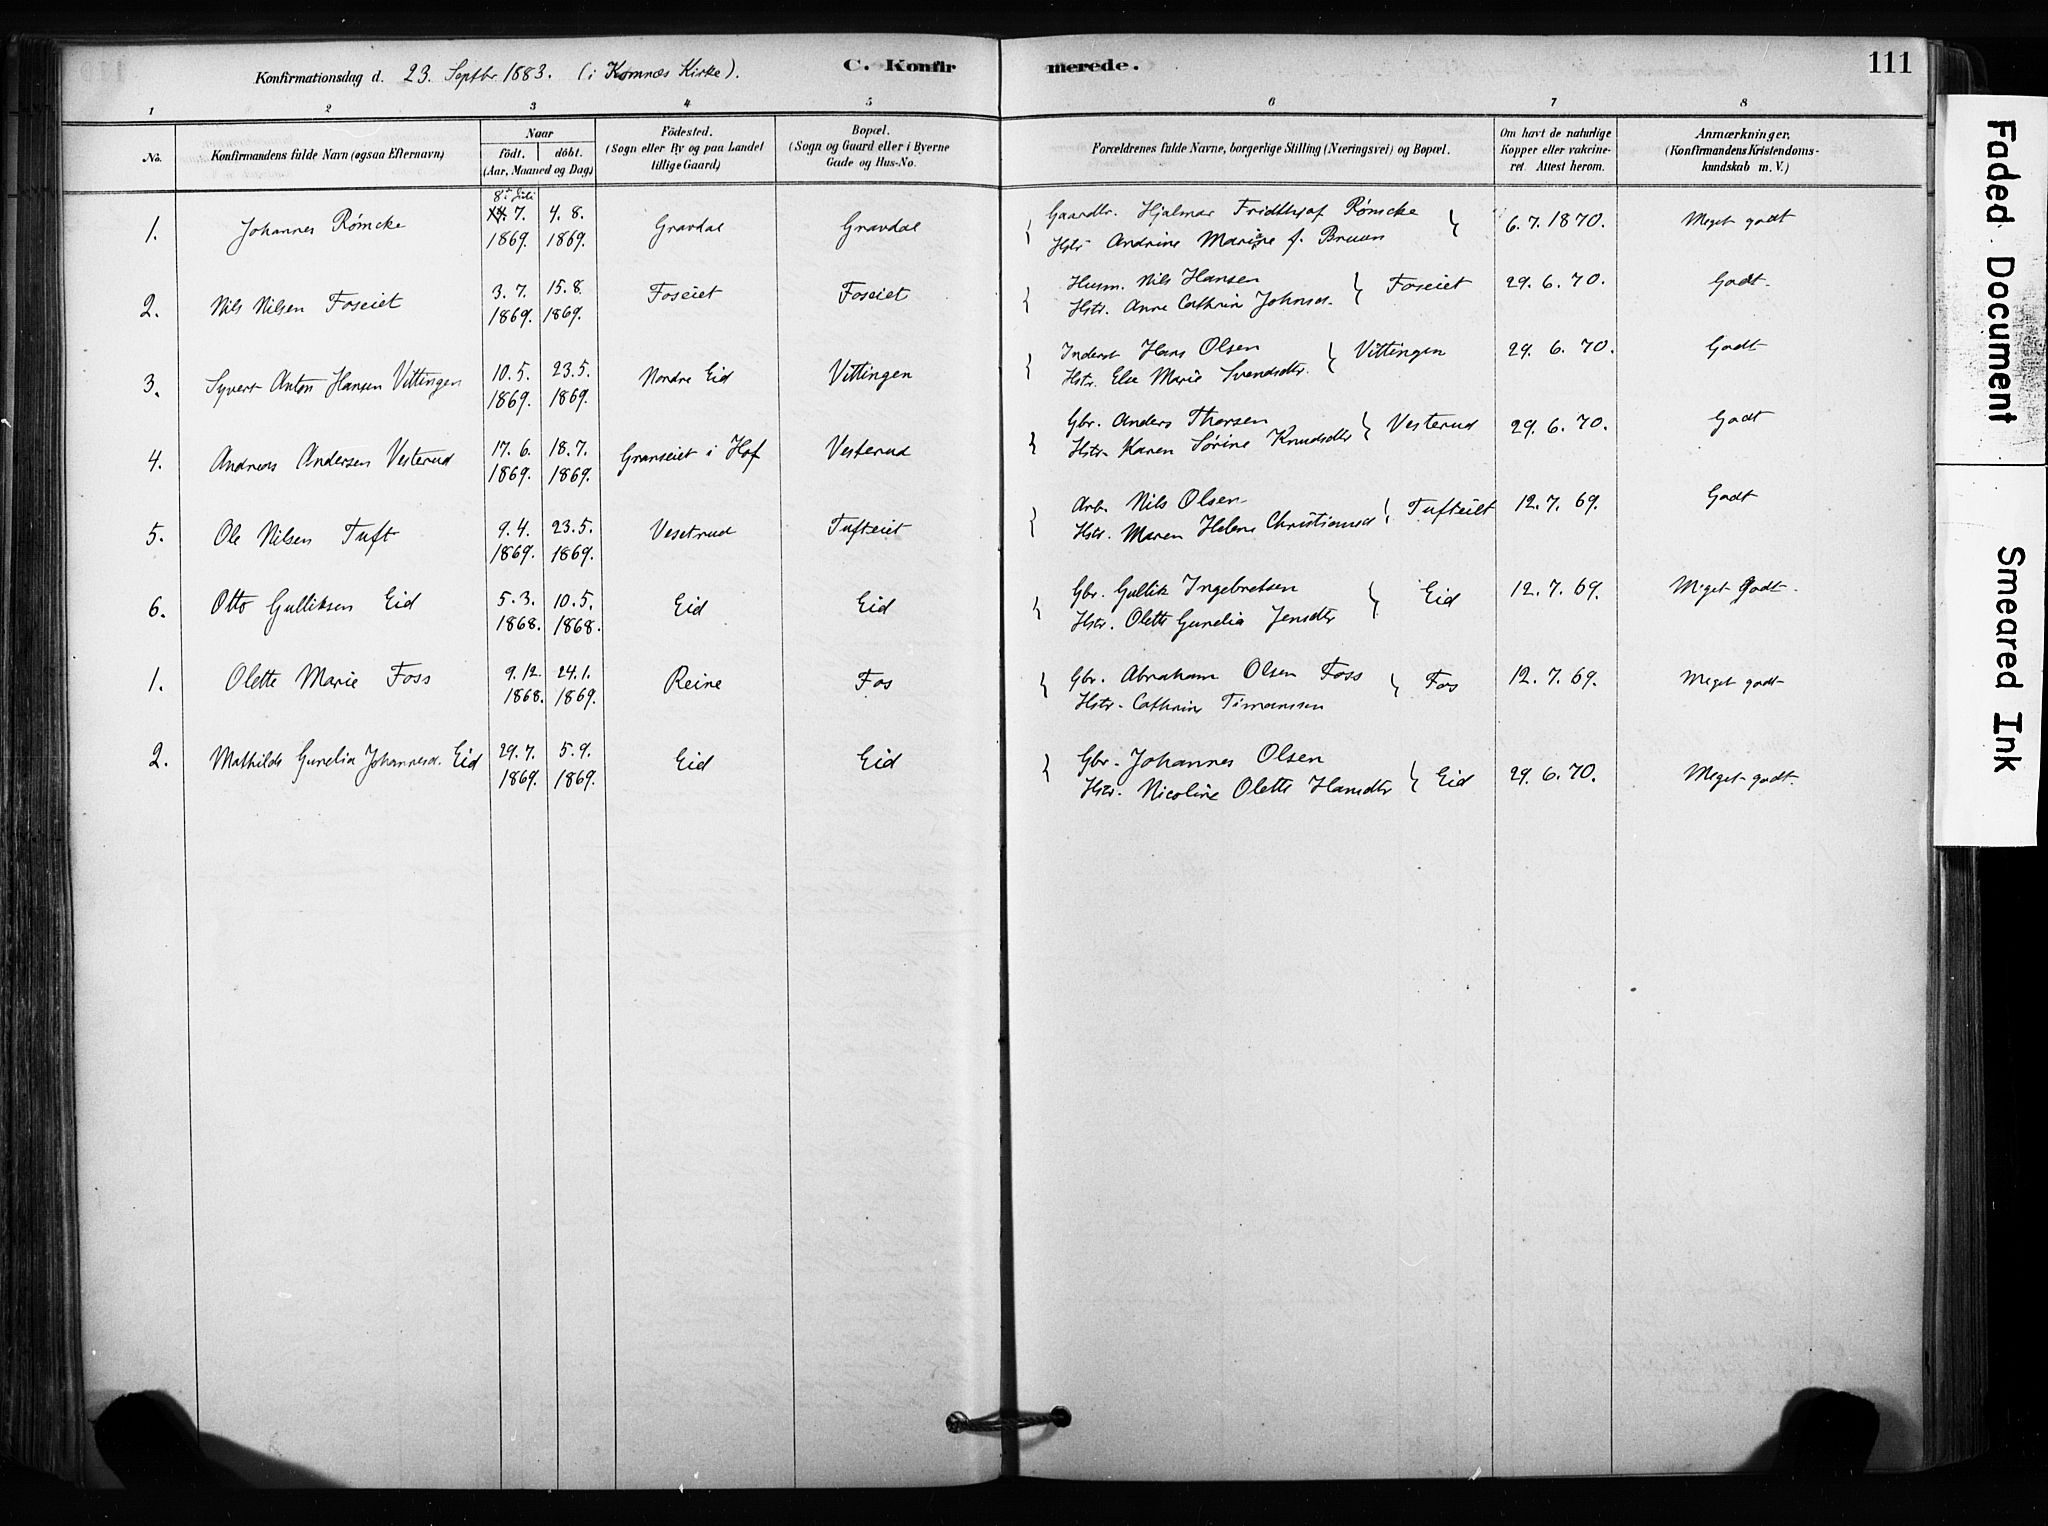 Konfirmationsdag d. 23. Septbr. 1883. (i Komnæs Kirke).
C. Konfirmerede.
111
1 2 3 4 5 6 7 8
No.
Konfirmandens fulde Navn (ogsaa Efternavn)
Naar
födt. döbt.
(Aar, Maaned og Dag)
Födested.
(Sogn eller By og paa Landet
tillige Gaard)
Bopæl.
(Sogn og Gaard eller i Byerne
Gade og Hus-No.
Forældrenes fulde Navne, borgerlige Stilling (Næringsvei) og Bopæl.
Om havt de naturlige
Kopper eller vakcine-
ret. Attest herom.
Anmærkninger,
(Konfirmandens Kristendoms-
kundskab m. V.)
1. Johannes Rømcke 8de Juli 7. 1869. 4. 8. 1869. Gravdal Gravdal
Gaardbr. Hjalmar Fridthjof Rømcke
Hstr. Andrine Marine f. Bruun
6. 7. 1870. Meget godt
2. Nils Nilsen Foseiet 3. 7. 1869. 15. 8. 1869. Foseiet Foseiet
Husm. Nils Hansen
Hstr. Anne Cathrin Johnsd. Foseiet
29. 6. 70. Godt.
3. Syvert Anton Hansen Vittingen 10. 5. 1869. 23. 5. 1869. Nordre Eid Vittingen
Inderst Hans Olsen
Hstr. Else Marie Svendsdtr. Vittingen
29. 6. 70. Godt
4. Andreas Andersen Vesterud 17. 6. 1869. 18. 7. 1869. Granseiet i Hof Vesterud
Gbr. Anders Thorsen
Hstr. Karen Sørine Knudsdtr Vesterud
29. 6. 70. Godt
5. Ole Nilsen Tuft 9. 4. 1869. 23. 5. 1869. Vesetrud Tufteiet
Arb. Nils Olsen
Hstr. Maren Helene Christiansd. Tufteiet
12. 7. 69. Godt
6. Otto Gulliksen Eid 5. 3. 1868. 10. 5. 1868. Eid Eid
Gbr. Gullik Ingebretsen
Hstr. Olette Gunelia Jensdtr Eid
12. 7. 69. Meget godt.
1. Olette Marie Foss 9. 12. 1868. 24. 1. 1869. Reine Fos
Gbr. Abraham Olsen Foss
Hstr. Cathrine Timanssen Fos
12. 7. 69. Meget godt
2. Mathilde Gunelia Johannesd. Eid 29. 7. 1869. 5. 9. 1869. Eid Eid
Gbr. Johannes Olsen
Hstr. Nicoline Olette Hansdtr Eid
29. 6. 70. Meget godt.
Faded Document
Smeared Ink